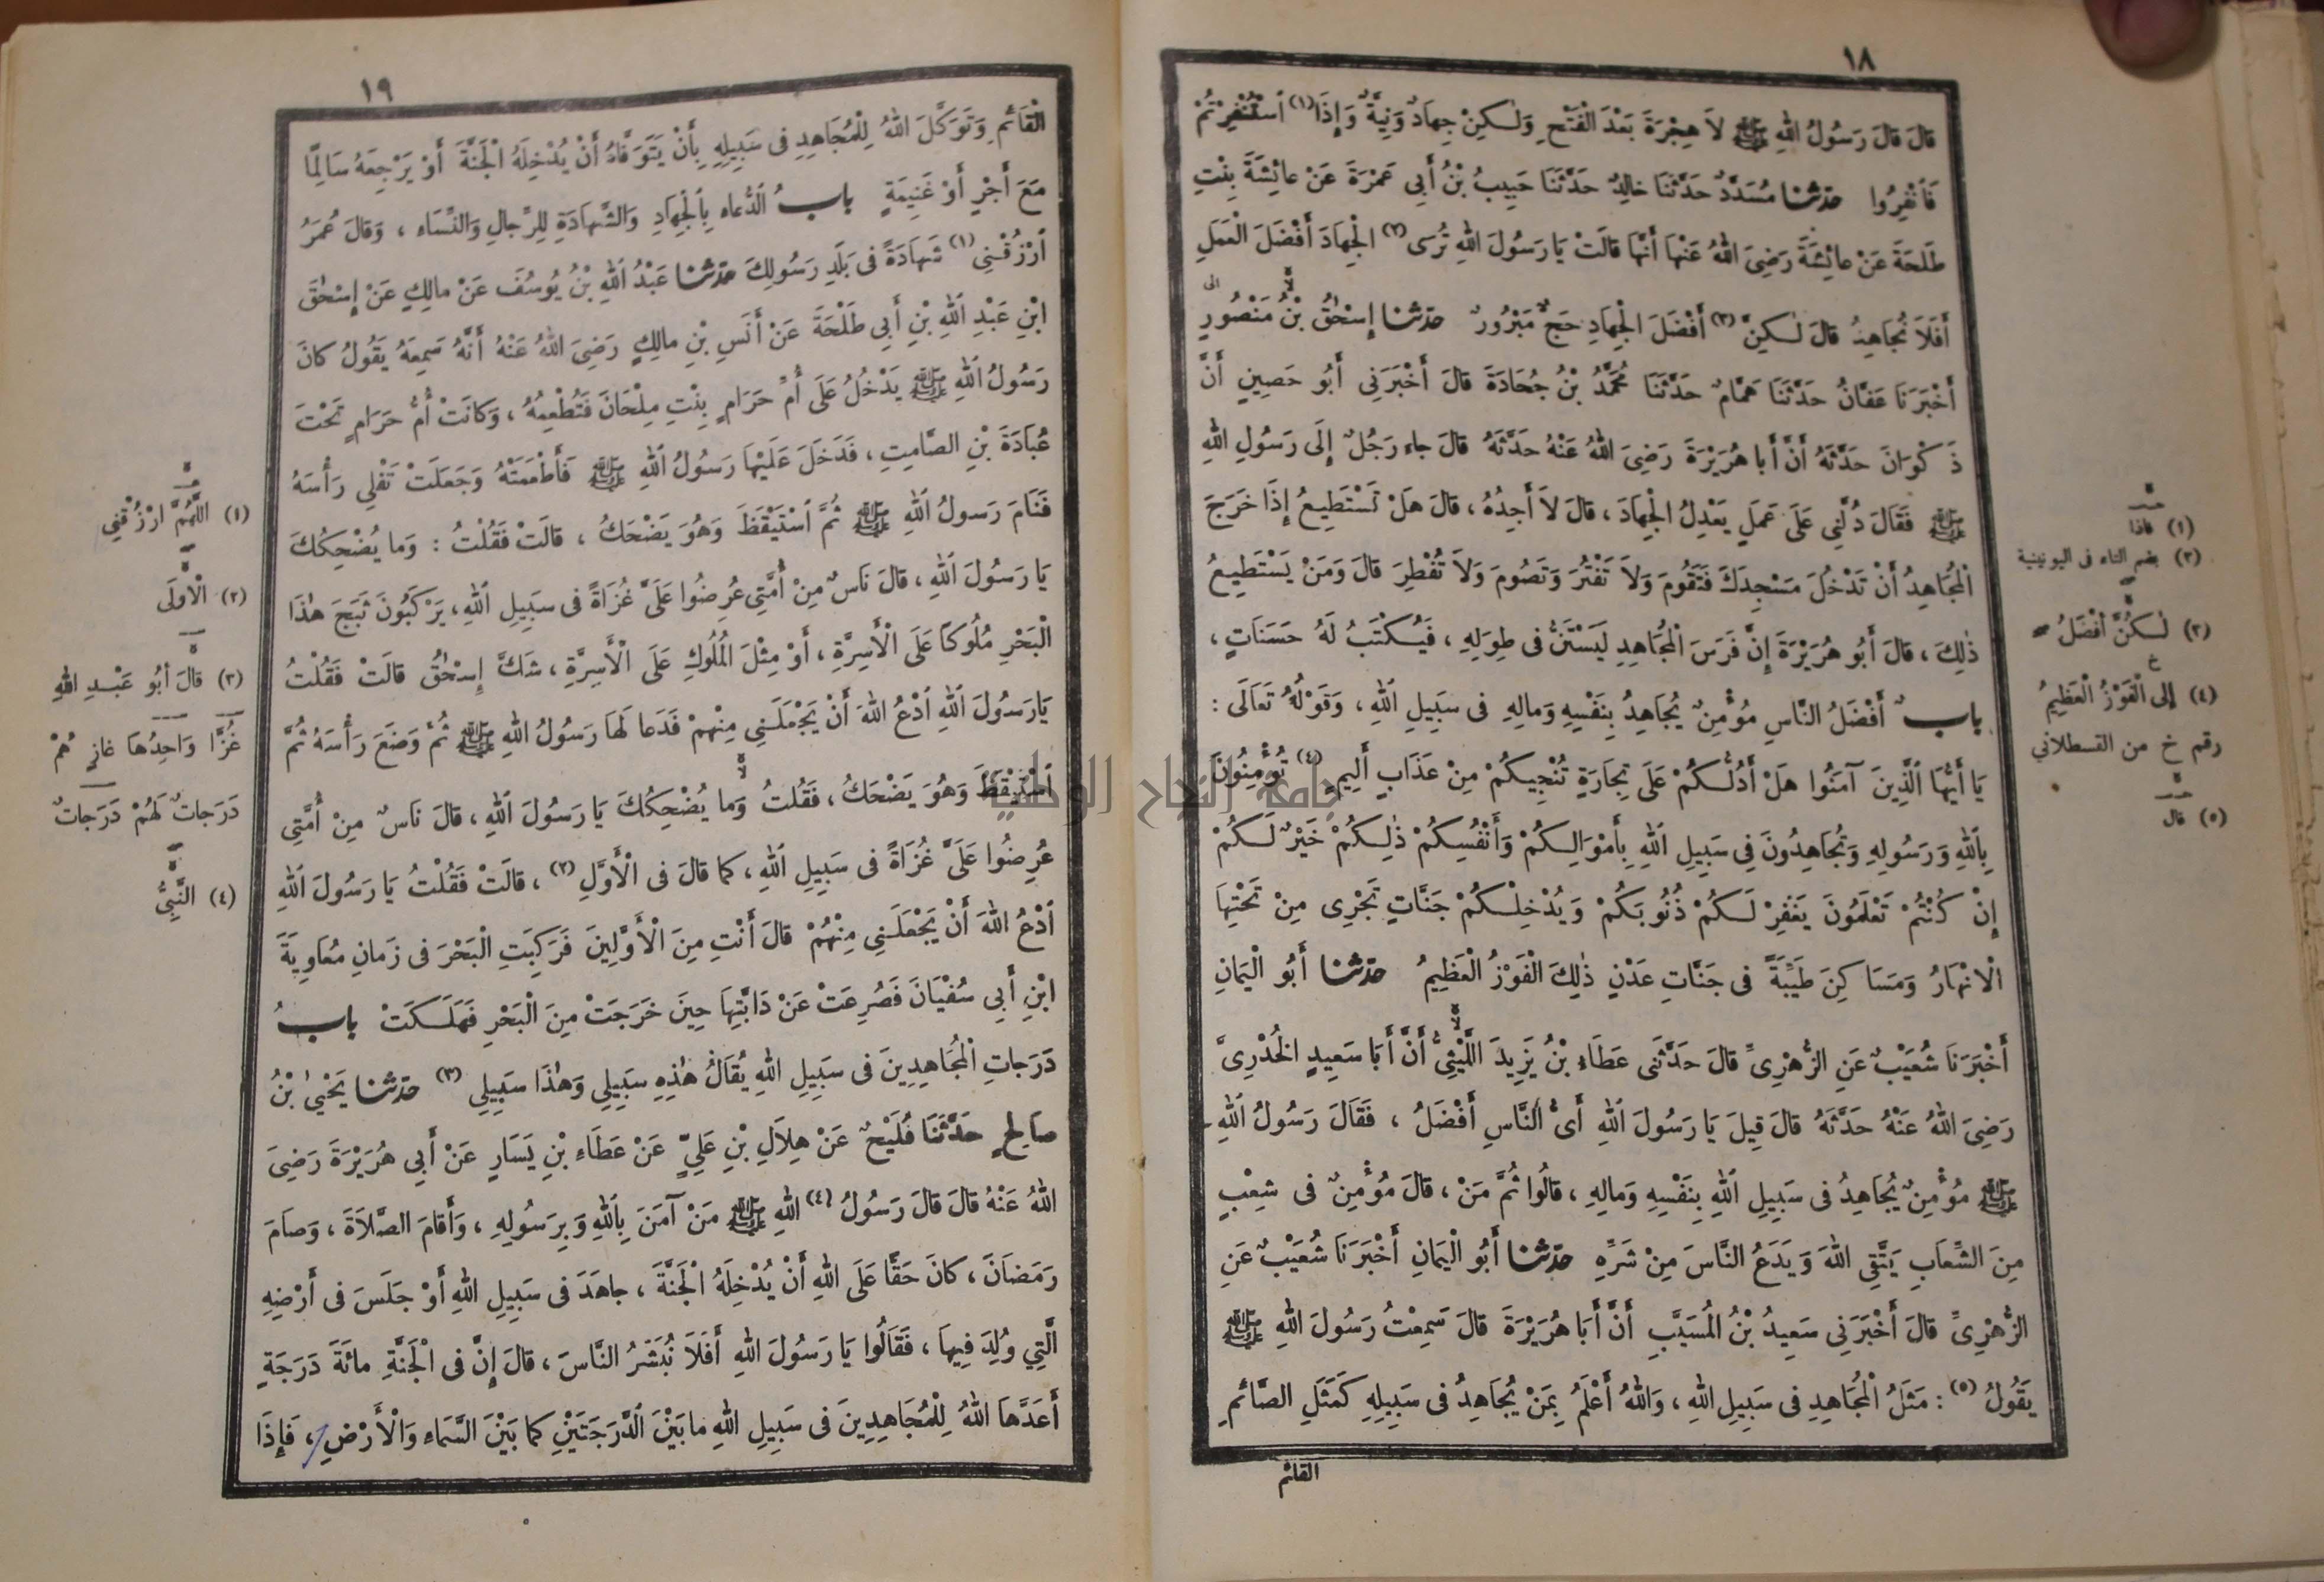 ١٨
قَالَ قَالَ رَسُولُ اللهِ ﷺ لاَ هِجْرَةَ بَعْدَ الْفَتْحِ وَلٰكِنْ جِهَادٌ وَنِيَّةٌ وَإِذَا (١) اَسْتُنْفِرْتُمْ
فَانْفِرُوا حَدَّثَنَا مُسَدَّدٌ حَدَّثَنَا خالِدٌ حَدَّثَنَا حَبِيبُ بْنُ أَبِي عَمْرَةَ عَنْ عائِشَةَ بِنْتِ
طَلْحَةَ عَنْ عائِشَةَ رَضِيَ اللهُ عَنْهَا أَنَّهَا قالَتْ يَا رَسُولَ اللهِ تُرَى (٢) الْجِهَادَ أَفْضَلَ الْعَمَلِ
أَفَلاَ نُجَاهِدُ قالَ لٰكِنَّ (٣) أَفْضَلَ الْجِهَادِ حَجٌّ مَبْرُورٌ حَدَّثَنَا إِسْحٰقُ بْنُ مَنْصُورٍ
أَخْبَرَنَا عَفَّانُ حَدَّثَنَا هَمَّامٌ حَدَّثَنَا مُحَمَّدُ بْنُ جُحَادَةَ قالَ أَخْبَرَنِى أَبُو حَصِينٍ أَنَّ
ذَكْوَانَ حَدَّثَهُ أَنَّ أَبا هُرَيْرَةَ رَضِيَ اللهُ عَنْهُ حَدَّثَهُ قالَ جاء رَجُلٌ إِلَى رَسُولِ اللهِ
ﷺ فَقَالَ دُلَّنِي عَلَى عَمَلٍ يَعْدِلُ الْجِهَادَ ، قالَ لاَ أَجِدُهُ ، قالَ هَلْ تَسْتَطِيعُ إِذَا خَرَجَ
الْمُجَاهِدُ أَنْ تَدْخُلَ مَسْجِدَكَ فَتَقُومَ وَلاَ تَفْتُرَ وَتَصُومَ وَلاَ تُفْطِرَ قالَ وَمَنْ يَسْتَطِيعُ
ذٰلِكَ ، قالَ أَبُو هُرَيْرَةَ إِنَّ فَرَسَ الْمُجَاهِدِ لَيَسْتَنُّ فى طِوَلِهِ ، فَيُكْتَبُ لَهُ حَسَنَاتٍ ،
بابٌ أَفْضَلُ النَّاسِ مُؤْمِنٌ يُجَاهِدُ بِنَفْسِهِ وَمالِهِ فى سَبِيلِ اللهِ ، وَقَوْلُهُ تَعَالَى :
يَا أَيُّهَا الَّذِينَ آمَنُوا هَلْ أَدُلُّكُمْ عَلَى تِجَارَةٍ تُنْجِيكُمْ مِنْ عَذَابٍ أَلِيمٍ (٤) تُؤْمِنُونَ
بِاللهِ وَرَسُولِهِ وَتُجَاهِدُونَ فِى سَبِيلِ اللهِ بِأَمْوَالِكُمْ وَأَنْفُسِكُمْ ذٰلِكُمْ خَيْرٌ لَكُمْ
إِنْ كُنْتُمْ تَعْلَمُونَ يَغْفِرْ لَكُمْ ذُنُوبَكُمْ وَيُدْخِلْكُمْ جَنَّاتٍ تَجْرِى مِنْ تَحْتِهَا
الْانْهَارُ وَمَسَاكِنَ طَيِّبَةً فى جَنَّاتِ عَدْنٍ ذٰلِكَ الْفَوْزُ الْعَظِيمُ حَدَّثَنَا أَبُو الْيَمَانِ
أَخْبَرَنَا شُعَيْبٌ عَنِ الزُّهْرِىِّ قالَ حَدَّثَنِى عَطَاءُ بْنُ يَزِيدَ اللَّيْثِىُّ أَنَّ أَبَا سَعِيدٍ الْخُدْرِىَّ
رَضِىَ اللهُ عَنْهُ حَدَّثَهُ قالَ قِيلَ يَا رَسُولَ اللهِ أَىُّ النَّاسِ أَفْضَلُ ، فَقَالَ رَسُولُ اللهِ
ﷺ مُؤْمِنٌ يُجَاهِدُ فى سَبِيلِ اللهِ بِنَفْسِهِ وَمالِهِ ، قالُوا ثُمَّ مَنْ ، قالَ مُؤْمِنٌ فى شِعْبٍ
مِنَ الشِّعَابِ يَتَّقِى اللهَ وَيَدَعُ النَّاسَ مِنْ شَرِّهِ حَدَّثَنَا أَبُو الْيَمَانِ أَخْبَرَنَا شُعَيْبٌ عَنِ
الزُّهْرِىِّ قالَ أَخْبَرَنِى سَعِيدُ بْنُ الْمُسَيَّبِ أَنَّ أَبَا هُرَيْرَةَ قالَ سَمِعْتُ رَسُولَ اللهِ ﷺ
يَقُولُ (٥) : مَثَلُ الْمُجَاهِدِ فى سَبِيلِ اللهِ ، وَاللهُ أَعْلَمُ بِمَنْ يُجَاهِدُ فى سَبِيلِهِ كَمَثَلِ الصَّائمِ
القائم
(١) فاذا
(٢) بضم التاء فى اليونينية
(٣) لٰكُنَّ أَفْضَلُ
(٤) إِلى الْفَوْزُ الْعَظِيمُ
رقم خ من القسطلاني
(٥) قال
١٩
الْقَائمِ وَتَوَكَّلَ اللهُ لِلْمُجَاهِدِ فى سَبِيلِهِ بِأَنْ يَتَوَفَّاهُ أَنْ يُدْخِلَهُ الْجَنَّةَ أَوْ يَرْجِعَهُ سَالِمًا
مَعَ أَجْرٍ أَوْ غَنِيمَةٍ بابُ الدُّعاء بِالْجِهَادِ وَالشَّهَادَةِ لِلرِّجالِ وَالنِّسَاء ، وَقالَ عُمَرُ
اَرْزُقْنِى (١) شَهَادَةً فى بَلَدِ رَسُولِكَ حَدَّثَنَا عَبْدُ اللهِ بْنُ يُوسُفَ عَنْ مالِكٍ عَنْ إِسْحٰقَ
ابْنِ عَبْدِ اللهِ بْنِ أَبِي طَلْحَةَ عَنْ أَنَسِ بْنِ مالِكٍ رَضِىَ اللهُ عَنْهُ أَنَّهُ سَمِعَهُ يَقُولُ كانَ
رَسُولُ اللهِ ﷺ يَدْخُلُ عَلَى أُمِّ حَرَامٍ بِنْتِ مِلْحَانَ فَتُطْعِمُهُ ، وَكانَتْ أُمُّ حَرَامٍ تَحْتَ
عُبَادَةَ بْنِ الصَّامِتِ ، فَدَخَلَ عَلَيْهَا رَسُولُ اللهِ ﷺ فَأَطْعَمَتْهُ وَجَعَلَتْ تَفْلِي رَأْسَهُ
فَنَامَ رَسولُ اللهِ ﷺ ثُمَّ اَسْتَيْقَظَ وَهُوَ يَضْحَكُ ، قالَتْ فَقُلْتُ : وَما يُضْحِكُكَ
يَا رَسُولَ اللهِ ، قالَ نَاسٌ مِنْ أُمَّتِي عُرِضُوا عَلَىَّ غُزَاةً فى سَبِيلِ اللهِ ، يَرْكَبُونَ ثَبَجَ هٰذَا
الْبَحْرِ مُلُوكًا عَلَى الْأَسِرَّةِ ، أَوْ مِثْلَ الْمُلُوكِ عَلَى الْأَسِرَّةِ ، شَكَّ إِسْحٰقُ قالَتْ فَقُلْتُ
يَا رَسُولَ اللهِ اَدْعُ اللهَ أَنْ يَجْعَلَنِي مِنْهمْ فَدَعا لَهَا رَسُولُ اللهِ ﷺ ثُمَّ وَضَعَ رَأْسَهُ ثُمَّ
اَسْتَيْقَظَ وَهُوَ يَضْحَكُ ، فَقُلْتُ وَما يُضْحِكُكَ يَا رَسُولَ اللهِ ، قالَ نَاسٌ مِنْ أُمَّتِي
عُرِضُوا عَلَىَّ غُزَاةً فى سَبِيلِ اللهِ ، كما قالَ فى الْأَوَّلِ (٢) ، قالَتْ فَقُلْتُ يَا رَسُولَ اللهِ
اَدْعُ اللهَ أَنْ يَجْعَلَنِي مِنْهُمْ قالَ أَنْتِ مِنَ الْأَوَّلِينَ فَرَكِبَتِ الْبَحْرَ فى زَمانِ مُعَاوِيَةَ
ابْنِ أَبِي سُفْيَانَ فَصُرِعَتْ عَنْ دَابَّتِهَا حِينَ خَرَجَتْ مِنَ الْبَحْرِ فَهَلَكَتْ بابُ
دَرَجاتِ الْمُجَاهِدِينَ فى سَبِيلِ اللهِ يُقَالُ هٰذِهِ سَبِيلِي وَهٰذَا سَبِيلِي (٣) حَدَّثَنَا يَحْيٰى بْنُ
صَالِحٍ حَدَّثَنَا فُلَيْحٌ عَنْ هِلاَلِ بْنِ عَلِيٍّ عَنْ عَطَاء بْنِ يَسَارٍ عَنْ أَبِي هُرَيْرَةَ رَضِيَ
اللهُ عَنْهُ قالَ قالَ رَسُولُ (٤) اللهِ ﷺ مَنْ آمَنَ بِاللهِ وَبِرَسُولِهِ ، وَأَقامَ الصَّلاَةَ ، وَصَامَ
رَمَضَانَ ، كانَ حَقًّا عَلَى اللهِ أَنْ يُدْخِلَهُ الْجَنَّةَ ، جاهَدَ فى سَبِيلِ اللهِ أَوْ جَلَسَ فى أَرْضِهِ
الَّتِي وُلِدَ فِيهَا ، فَقَالُوا يَا رَسُولَ اللهِ أَفَلاَ نُبَشِّرُ النَّاسَ ، قالَ إِنَّ فى الْجَنَّةِ مائَةَ دَرَجَةٍ
أَعَدَّهَا اللهُ لِلْمُجَاهِدِينَ فى سَبِيلِ اللهِ ما بَيْنَ الدَّرَجَتَيْنِ كما بَيْنَ السَّمَاء وَالْأَرْضِ ، فَإِذَا
(١) اللَّهُمَّ ارْزُقْنِي
(٢) الْأولَى
(٣) قالَ أَبُو عَبْدِ اللهِ
غُزًّا وَاحِدُهَا غازٍ هُمْ
دَرَجاتٌ لَهُمْ دَرَجاتٌ
(٤) النَّبِيُّ
جامعة النجاح الوطنية